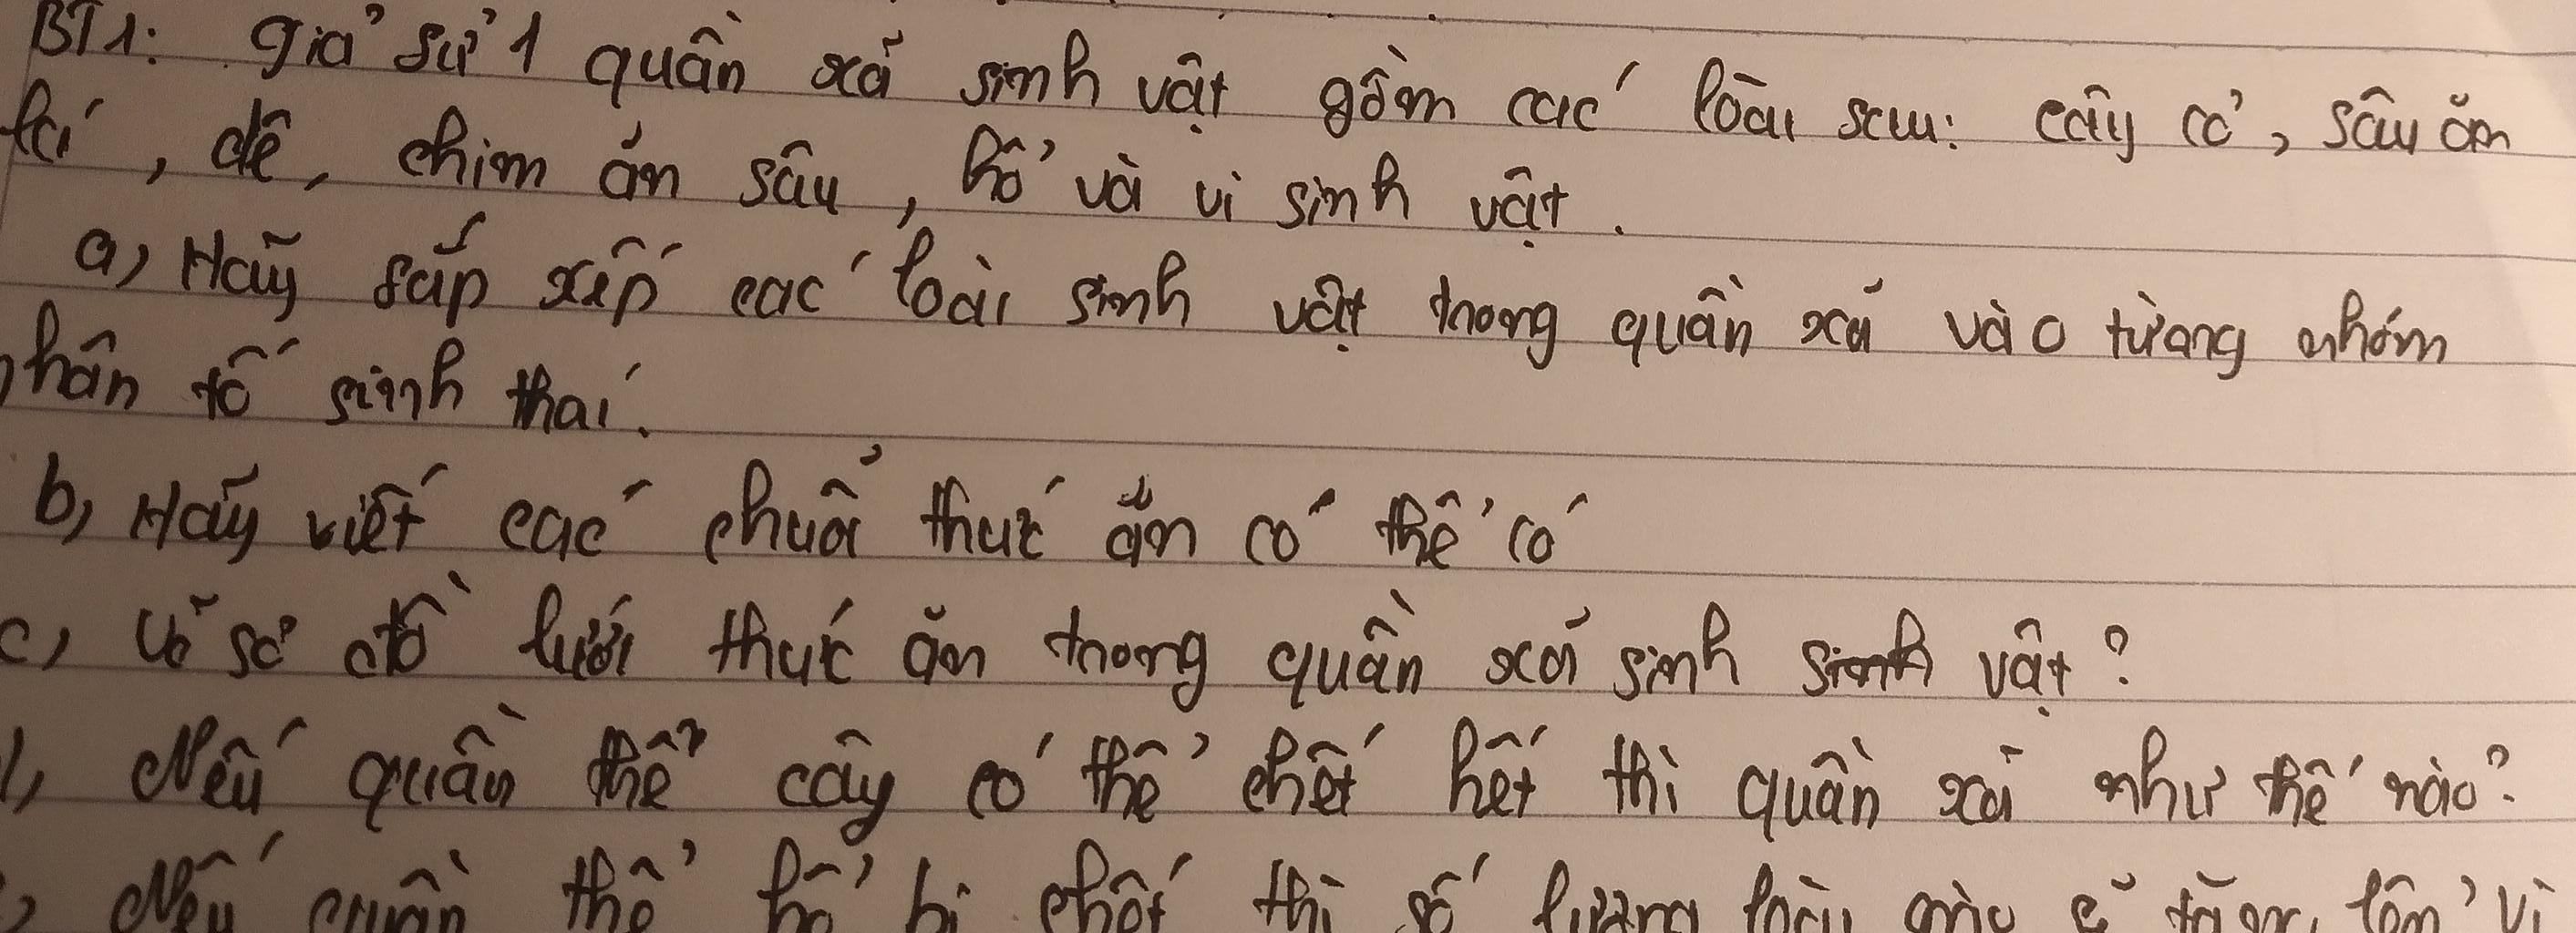 BT1: giả sử 1 quần xã sinh vật gồm các loài sau: cây cỏ, sâu ăn
lá, dê, chim ăn sâu, hổ và vi sinh vật.
a) Hãy sắp xếp các loài sinh vật trong quần xã vào từng nhóm
nhân tố sinh thái.
b, Hãy viết các chuỗi thức ăn có thể có
c, vẽ sơ đồ lưới thức ăn trong quần xã sinh sinh vật?
d, Nếu quần thể cây có thể chết hết thì quần xã như thế nào?
, Nếu quần thể hổ bị chết thì số lượng loài nào sẽ tăng lên? vì